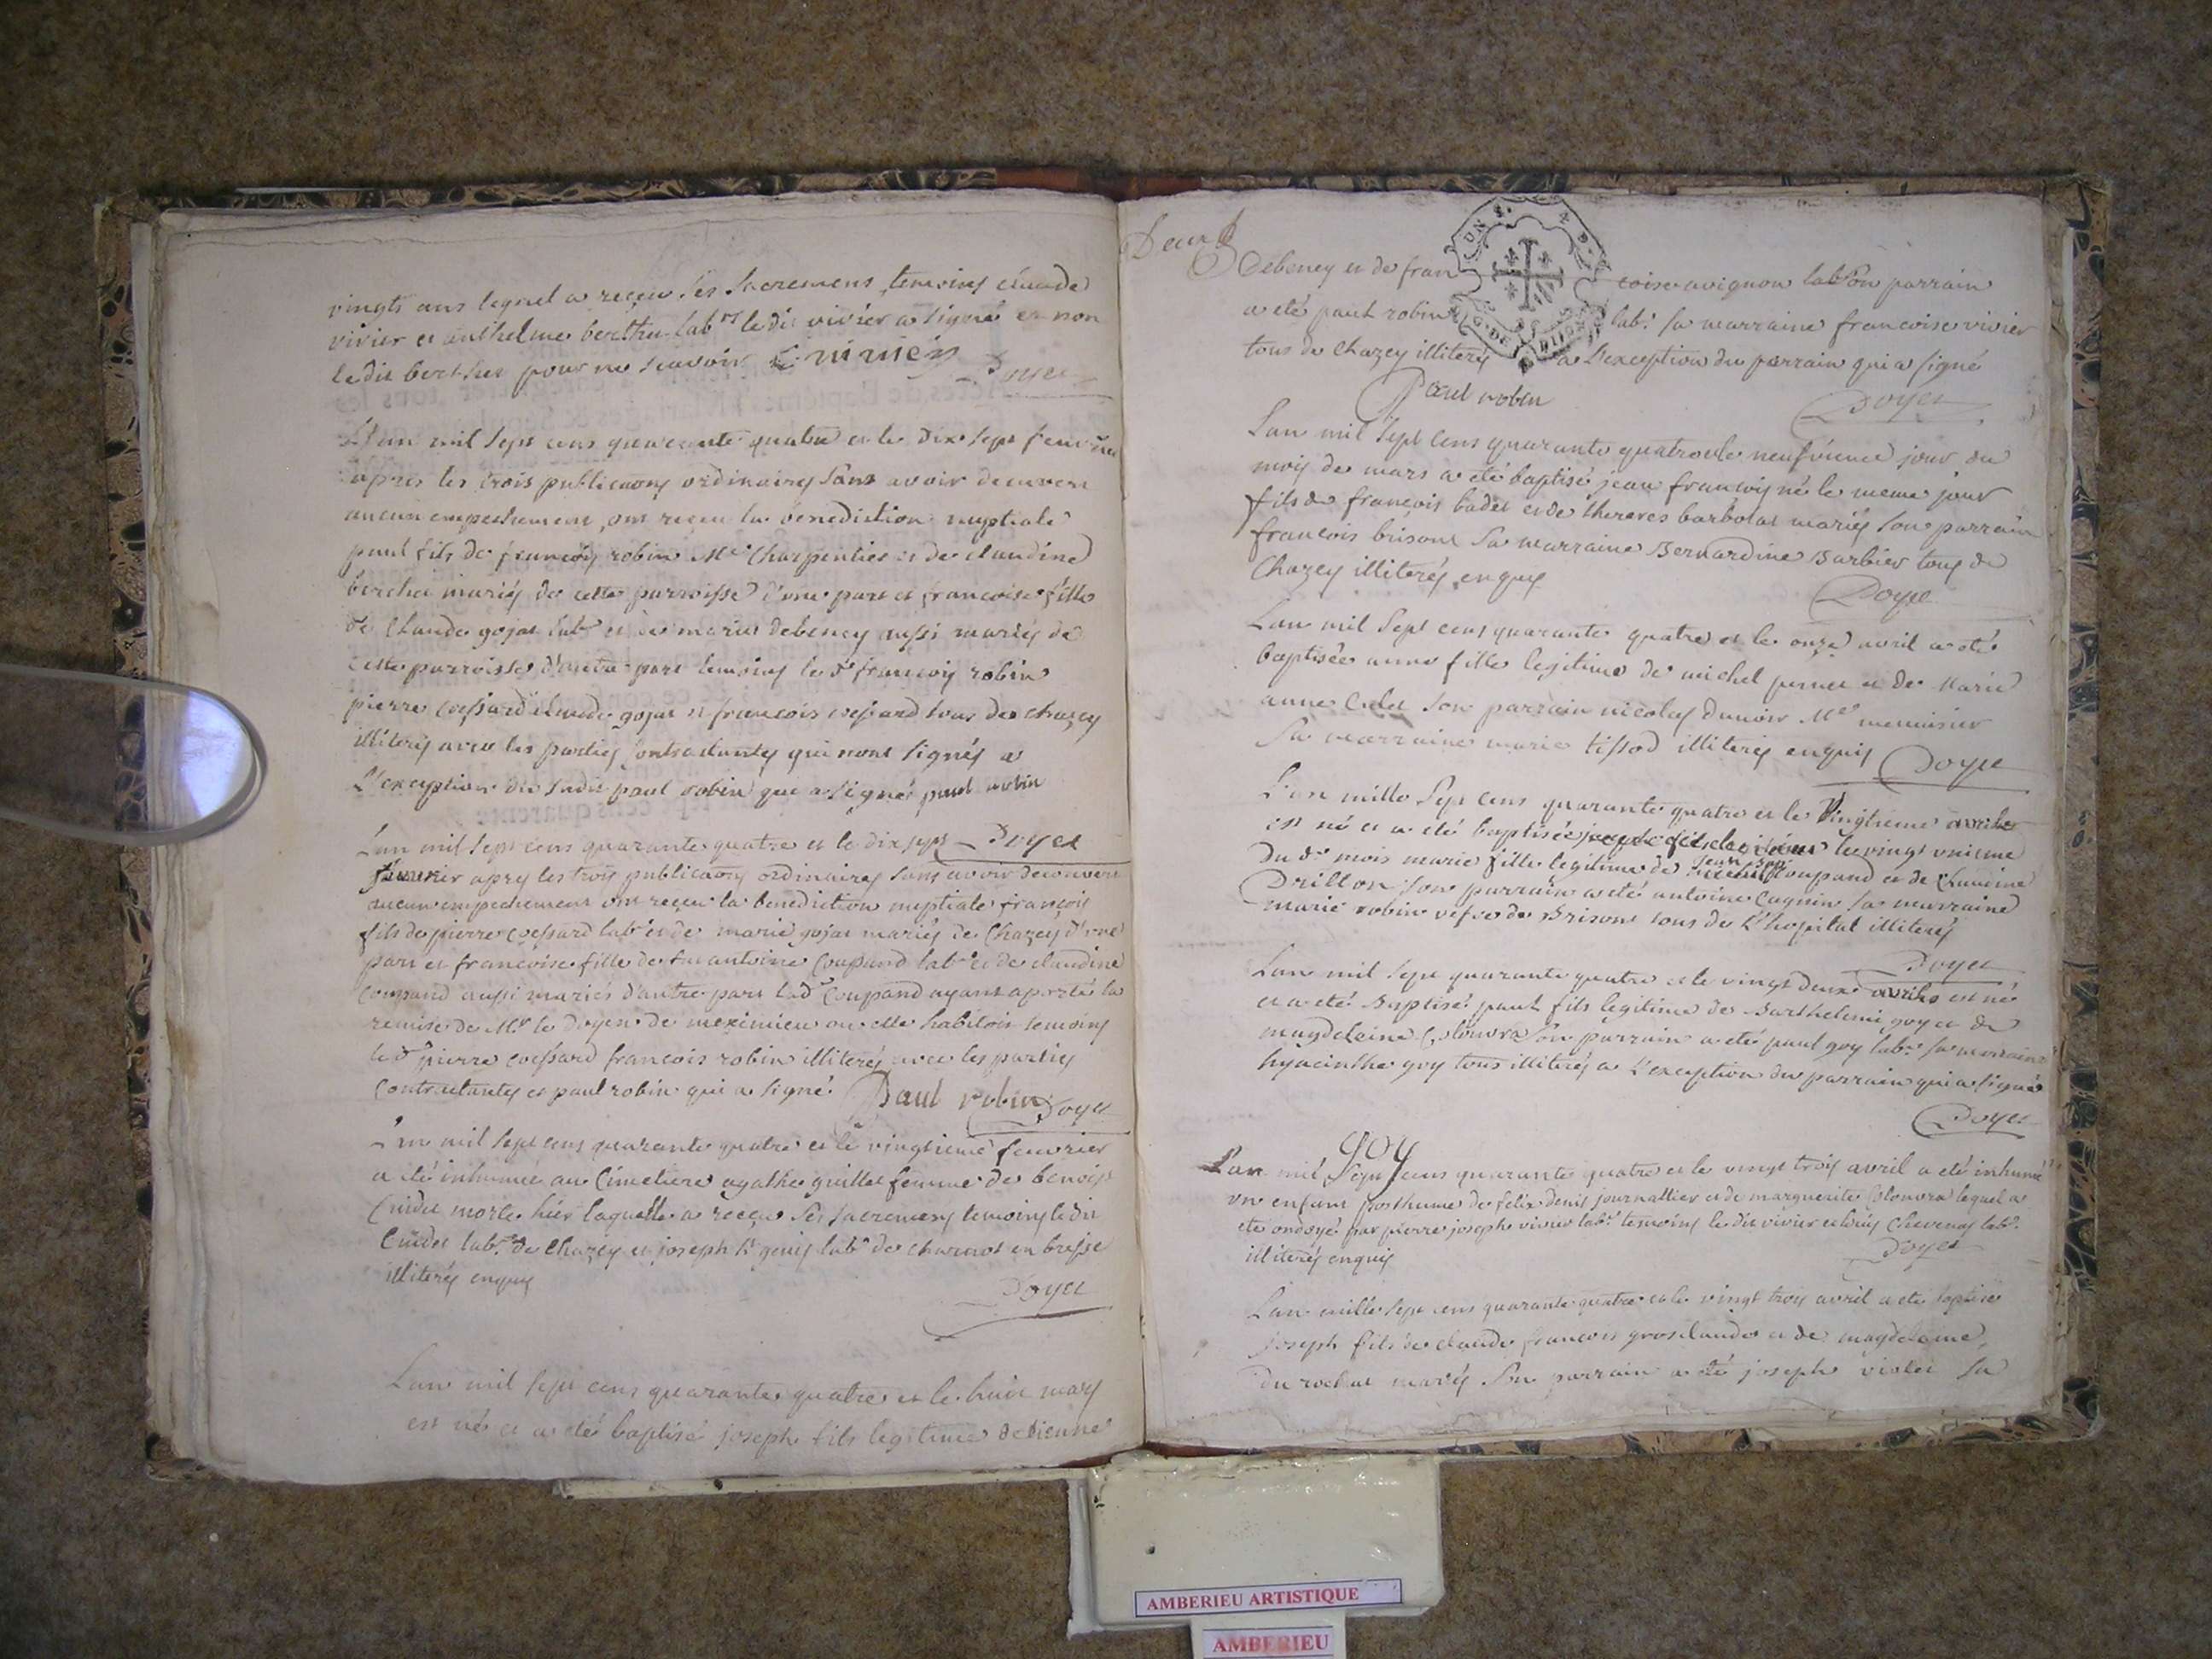 vingts ans lequel a reçeu ses sacremens temoins claude
vivier et anthelme berthet labrs ledit vivier a signé et non
ledit berthet pour ne scavoir C vivier Doyet
L'an mil sept cens quarante quatre et le dix sept feuvrier
apres les trois publicaons ordinaires sans avoir decouvert
aucun empechement ont reçeu la benediction nuptiale
paul fils de françois robin Me Charpentier et de claudine
berchet mariés de cette parroisse d'une part et francoise fille
de Claude gojat labr et de marie debeney aussi mariés de
cette parroisse d'autre part temoins le dt françois robin
pierre coessard claude gojat et francois coessard tous de chazey
illiterés avec les parties contractantes qui n'ont signés a
L'exception du susdit paul robin qui a signé paul robin
Doyet
L'an mil sept cens quarante quatre et le dix sept
feuvrier apres les trois publicaons ordinaires sans avoir decouvert
aucun empechement ont reçeu la benediction nuptiale françois
fils de pierre coessard labr et de marie gojat mariés de Chazey d'une
part et francoise fille de feu antoine Coupand labr et de claudine
coupand aussi mariés d'autre part lad Coupand ayant aporté la
remise de Mr le Doyen de meximieu ou elle habitoit temoins
le dt pierre coessard francois robin illiterés avec les parties
Contractantes et paul robin qui a signé Paul robin Doyet
L'an mil sept cens quarante quatre et le vingtieme feuvrier
a été inhumée au Cimetiere agathe guillet femme de benoit
Cuidet morte hier laquelle a reçeu ses sacremens temoins ledit
Cuidet labr de Chazey et joseph st genis labr de charnoz en bresse
illiterés enquis
Doyet
L'an mil sept cens quarante quatre et le huit mars
est né et a été baptisé joseph fils legitime de etienne
Deux
Debeney et de francoise avignon labr son parrain
a été paul robin labr sa marraine francoise vivier
tous de Chazey illiterés a L'exception du parrain qui a signé
Paul robin Doyet
L'an mil sept cens quarante quatre et le neufvieme jour du
mois de mars a été baptisé jean françois né le meme jour
fils de françois badet et de thereres barbolat mariés son parrain
francois brison sa marraine Bernardine Barbier tous de
Chazey illiterés enquis
Doyet
L'an mil sept cens quarante quatre et le onze avril a été
baptisée anne fille legitime de michel pernet et de Marie
anne Culet son parrain nicolas dunoir Me menuisier
sa marraine marie tissod illiterés enquis Doyet
L'an mille sept cens quarante quatre et le vingtieme avril
est né et a été baptisée le vingt unieme
du dt mois marie fille legitime de jean Coupand et de Claudine
Drillon son parrain a été antoine Cagnin sa marraine
marie robin vefve de Brison tous de L'hopital illiterés
Doyet
L'an mil sept quarante quatre et le vingt deux avril est né
et a été Baptisé paul fils legitime de Barthelemi goy et de
magdeleine Colomra son parrain a été paul goy labr sa marraine
hyacinthe goy tous illiterés a L'exception du parrain qui a signé
Doyet
goy
L'an mil sept cens quarante quatre et le vingt trois avril a été inhumé
un enfant posthume de felix denis journallier et de marguerite Colomra lequel a
été ondoyé par pierre joseph vivier labr temoins le dit vivier et Chevenay labr
illiterés enquis
Doyet
L'an mille sept cens quarante quatre et le vingt trois avril a été baptisé
joseph fils de claude francois grosclaude et de magdeleine
du rochat mariés son parrain a été joseph violet sa
AMBERIEU ARTISTIQUE
AMBERIEU